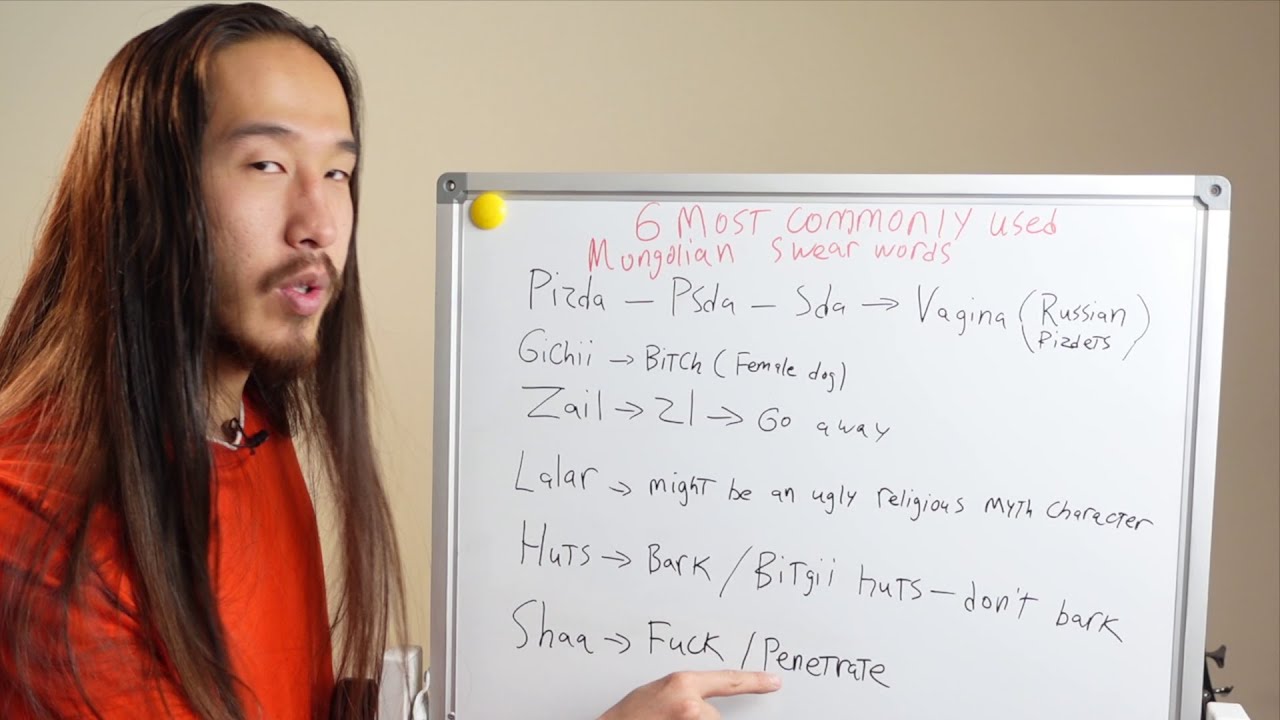 6 Most commonly used
Mungolian swear words
Pizda – PSda – Sda → Vagina (Russian Pizdets)
Gichii → Bitch (Female dog)
Zail → Zl → Go away
Lalar → might be an ugly religious myth character
Huts → Bark / Bitgii huts – don't bark
Shaa → Fuck / Penetrate